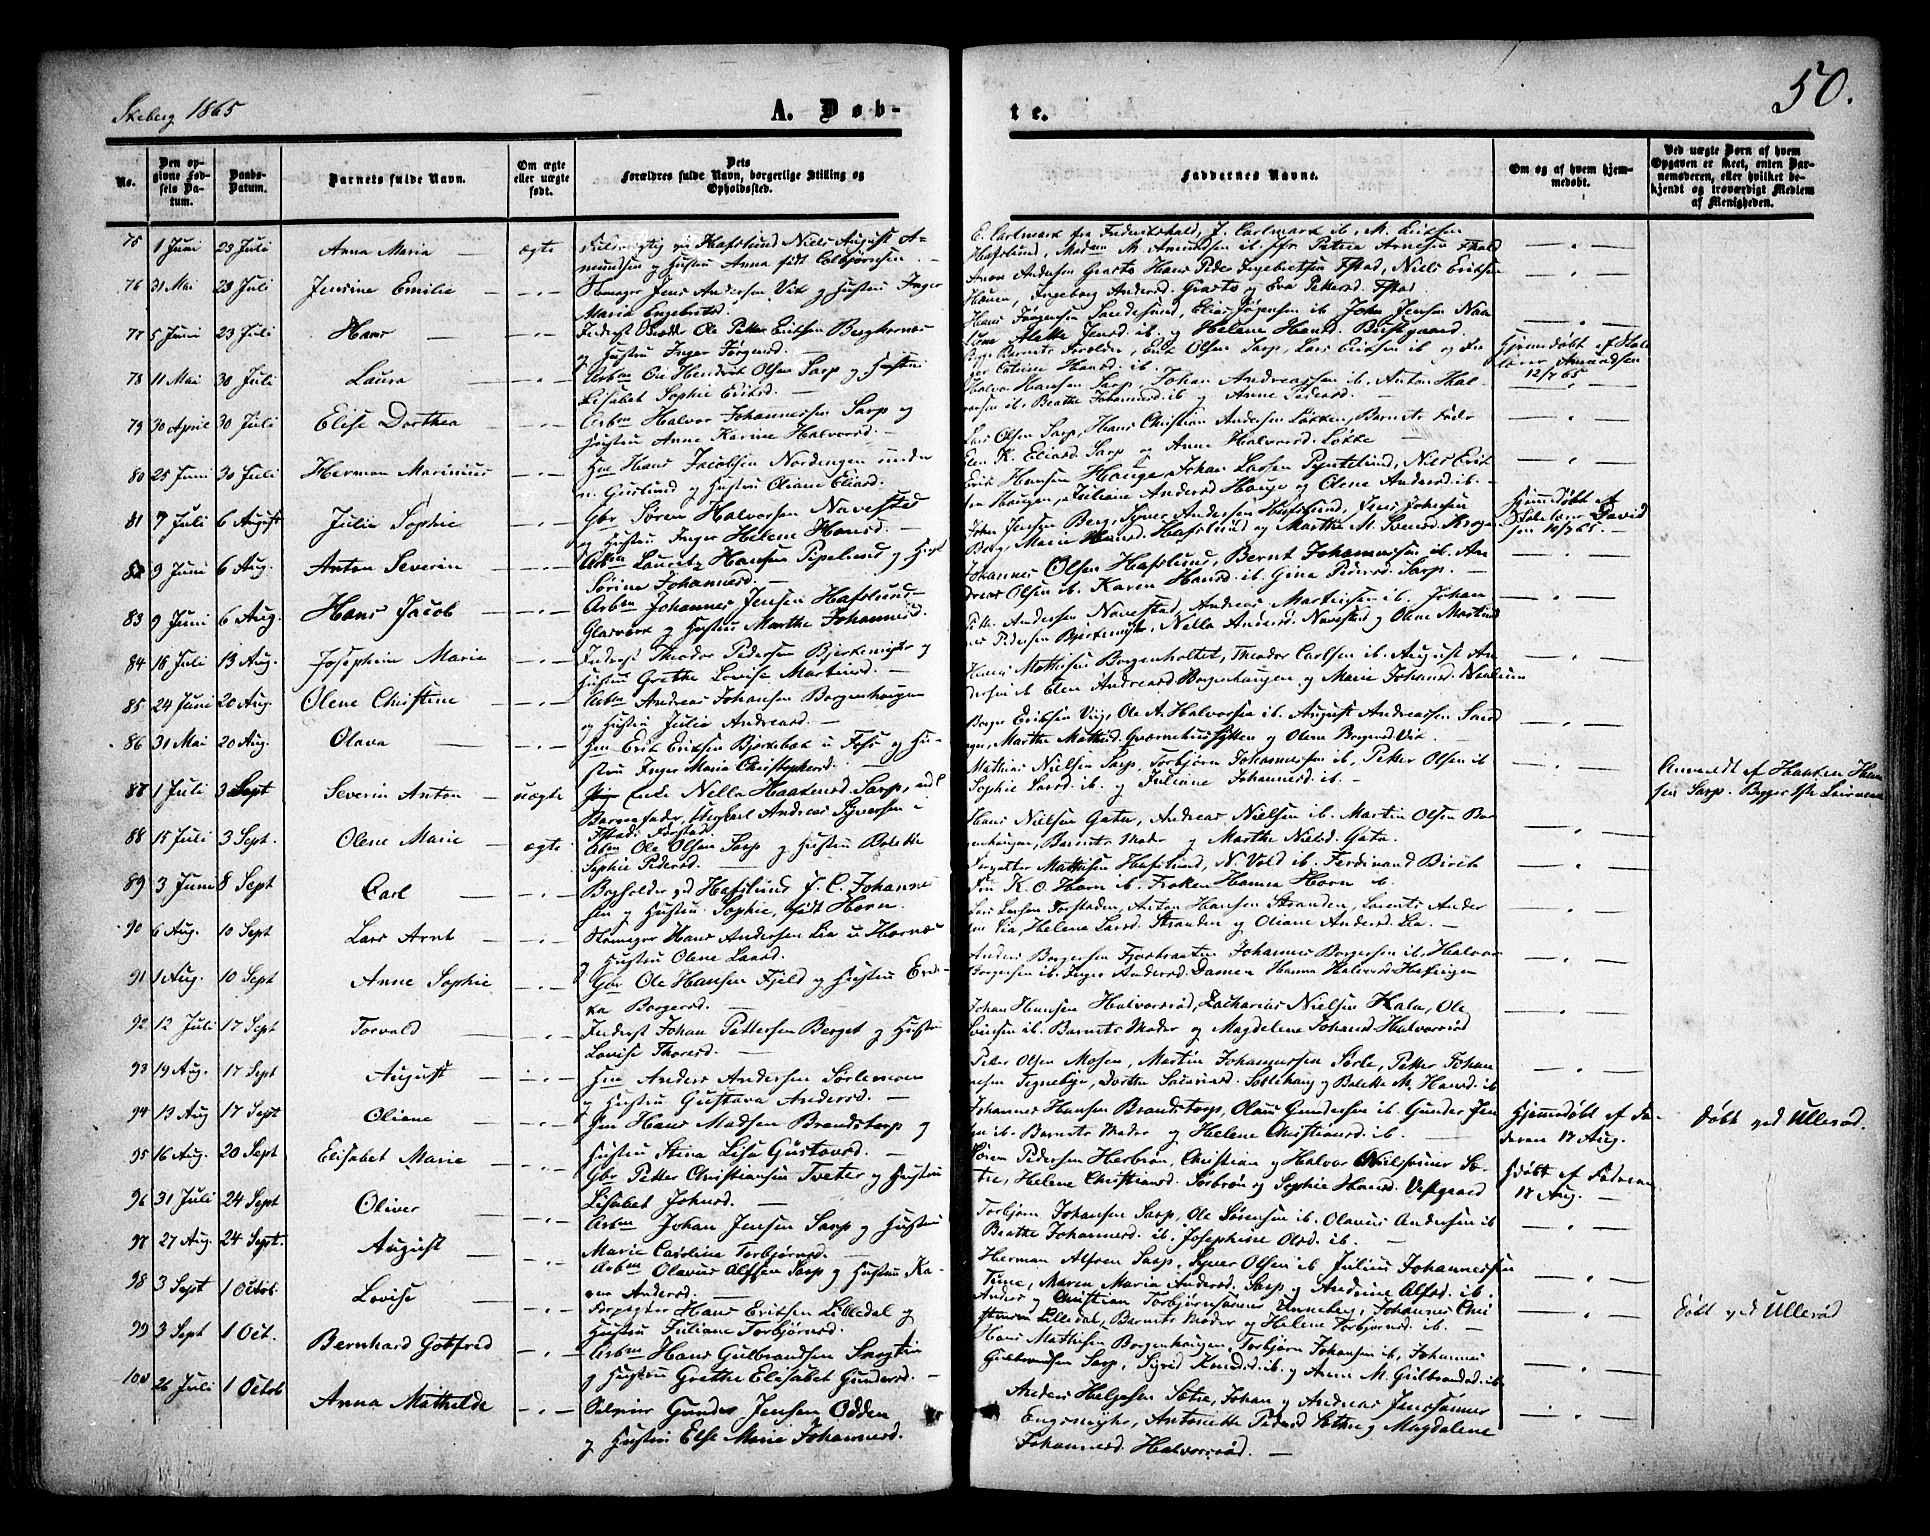 Skeberg 1865
A. Døb-
te.
50.
No.
Den op-
givne Fød-
sels Da-
tum.
Daabs-
Datum.
Barnets fulde Navn.
Om ægte
eller uægte
født.
Dets
Forældres fulde Navn, borgerlige Stilling og
Opholdssted.
Faddernes Navne.
Om og af hvem hjem-
medøbt.
Ved uægte Børn af hvem
Opgaven er skeet, enten Bar-
nemoderen, eller hvilket be-
kjendt og troværdigt Medlem
af Menigheden.
75 1 Juni 23 Juli Anna Maria — ægte Hafslund Niels August A-
mundsen og Hustru Anna født Colbjørnsen. —
E. Carlmark fra Frederikshald, J. Carlmark ib. M. Eriksen
Hafslund, Madam M. Amundsen ib. Petrea Arnesen
76 31 Mai 23 Juli Jensine Emilie — Jens Andersen Vik og Hustru Inger
Maria Engebretsd.
Andersen Grasto Hans Peder Ingebretsen Niels Eriksen
Ingeborg Andersd. Grasto og Eva Pettersd.
77 5 Juni 23 Juli Hans — Inderst Ole Petter Eriksen
og Hustru Inger Jørgensd. —
Hans Jørgensen Elias Jørgensen ib John Jensen
Jensd. ib. og Helene Hansd. Bustgaard.
78 11 Mai 30 Juli Laura — Arbm Ole Hendrik Olsen Sarp og Hustru
Lisabet Sophie Eriksd. —
Barnets Forældre, Erik Olsen Sarp, Lars Eriksen ib og
Hansd. ib.
Hjemmedøbt af
Amundsen
12/7 65
79 30 April 30 Juli Elise Dorthea — Arbm Halvor Johannessen Sarp og
Hustru Anne Karine Halvorsd. —
Halvor Hansen Sarp, Johan Andreassen ib. Anton Hal-
vorsen ib, Beathe Johannesd. ib og Anne Pedersd.
80 25 Juni 30 Juli Herman Marinius — Hans Jacobsen Nordengen under
n. Guslund og Hustru Oliane Eliasd. —
Lars Olsen Sarp, Hans Christian Andersen Løkken, Barnets Fader
Elen K. Eliasd Sarp og Anne Halvorsd. Løkke —
81 7 Juli 6 August Julie Sophie — Gbr Søren Halvorsen Navestad
og Hustru Inger Helene Hansd. —
Erik Hansen Hauge, Johan Larsen Niels Erik-
sen Haugen, Juliane Andersd Hauge og Olene Andersd. ib. —
Hjemmedøbt af
David
82 9 Juni 6 Aug. Anton Severin — Arbm Lauritz Hansen og Hust
Sørine Johannesd. —
John Jensen Berg, Syver Andersen Hafslund, Jens Johnsen
Borg, Marie Hansd. Hafslund og Marthe M. Svensd.
83 9 Juni 6 Aug. Hans Jacob — Arbm Johannes Jensen Hafslund
Glasværk og Hustru Marthe Johannesd.
Johannes Olsen Hafslund, Bernt Johannessen ib. An-
dreas Olsen ib. Karen Hansd. ib. Gina Pedersd. Sarp. —
84 16 Juli 13 Aug. Josephine Marie — Inderst Theodor Pedersen Bjerkemyhr og
Hustru Grethe Lovise Martinsd. —
Andersen Navestad, Andreas Martinsen ib. Johan-
nes Pedersen Bjerkemyhr, Nella Andersd. Navestad og Olene Martinsd
85 24 Juni 20 Aug. Olene Christine — Arbm Andreas Johansen Borgenhaugen
og Hustru Julie Andreasd. —
Hans Mathisen Borgenholtet, Theodor Carlsen ib. August An-
dersen ib Elen Andreasd Borgenhaugen og Marie Johansd.
86 31 Mai 20 Aug. Olava — Hm Erik Eriksen Bjerkebæk u Foss og Hu-
stru Inger Marie Christophersd. —
Borger Eriksen Viig, Ole A. Halvorsen ib. August Andreassen Sand-
Marthe Mathisd. og Olene Borgersd Vik —
87 1 Juli 3 Sept Severin Anton — uægte Enke Nella Haakensd. Sarp, udl
Barnefader, Andreas Syversen i
Mathias Nielsen Sarp, Torbjørn Johannessen ib, Petter Olsen ib
Sophie Larsd ib. og Juliane Johannesd. ib. —
Anmeldt af Haaken Han-
sen Sarp.
88 15 Juli 3 Sept. Olene Marie — ægte Arbm Ole Olsen Sarp og Hustru
Sophie Pedersd. —
Hans Nielsen Gata, Andreas Nielsen ib. Martin Olsen Bor-
genhaugen, Barnets Moder og Marthe Nielsd. Gata.
89 3 Juni 8 Sept Carl — Bogholder ved Hafslund J. C. Johanne-
sen og Hustru Sophie, født Horn. —
Mathisen Hafslund, N. Vold ib. Ferdinand Birch
Fru K. O. Horn ib. Frøken Hanna Horn ib.
90 6 Aug. 10 Sept Lars Arnt — Hans Andersen Lia u
og Hustru Olene Larsd.
Lars Larsen Torstaden, Anton Hansen Stranden, Lorents Ander
sen Lia, Helene Larsd. Stranden og Oliane Andersd. Lia. —
91 1 Aug. 10 Sept Anne Sophie — Gbr Ole Hansen Fjeld og Hustru
Borgersd. —
Anders Borgersen Johannes Borgersen ib, Halvor
Borgersen ib. Inger Andersd. Damen Hanna Halvorsd
92 12 Juli 17 Sept Torvald — Inderst Johan Pettersen Berget og Hustru
Lovise Thoresd. —
Johan Hansen Halvorsrød, Zacharias Nielsen Kala, Ole
ib. Barnets Moder og Magdelene Johansd Halvorsrød
93 19 Aug. 17 Sept August — Hm Anders Andersen Sørlemoen
og Hustru Gustava Andersd. —
Peter Olsen Mosen, Martin Johannessen Sørle, Petter Johan-
nesen Tegneby, Dorthe og Bolette M. Hansd. ib
94 13 Aug 17 Sept Oliane — Hm Hans Madsen Brandstorp og
Hustru Stina Lisa Gustavsd. —
Johannes Hansen Brandstorp, Olaus Gundersen ib. Gunder Jen-
sen ib. Barnets Moder og Helene Christiansd. ib. —
Hjemmedøbt af Fa-
deren 17 Aug.
Døbt ved Ullerød.
95 16 Aug. 20 Sept Elisabet Marie — Gbr Petter Christiansen Tveter og Hustru
Lisabet Johnsd. —
Søren Pedersen Herbrøn, Christian og Halvor
Helene Christiansd. Sørbrøn og Sophie Hansd. Vestgaard
Hdøbt af Faderen
17 Aug. —
96 31 Juli 24 Sept Oliver — Arbm Johan Jensen Sarp og Hustru
Marie Caroline Torbjørnsd. —
Torbjørn Johansen Sarp, Ole Sørensen ib. Olavus Andersen ib
Beathe Johannesd. ib, Josephine Olsd. ib. —
97 27 Aug. 24 Sept. August — Arbm Olavus Alfsen Sarp og Hustru Ka-
ren Andersd. —
Herman Alfsen Sarp, Syver Olsen ib Julius Johannessen
Tune, Maren Maria Andersd. Sarp og Andrine Alfsd. ib.
98 3 Sept 1 Octob. Lovise — Forpagter Hans Eriksen Lilledal og
Hustru Juliane Torbjørnsd. —
Anders og Christian Torbjørnsønner Johannes Chri-
stensen Lilledal, Barnets Moder og Helene Torbjørnsd. ib. —
Døbt ved Ullerød
99 3 Sept 1 Oct. Bernhard Gotfred — Arbm Hans Gulbrandsen
og Hustru Grethe Elisabet Gundersd. —
Hans Mathisen Borgenhaugen, Torbjørn Johansen ib, Johannes
Gulbrandsen Sarp, Sigrid Knudsd. ib. og Anne M. Gulbrandsd. ib
100 26 Juli 1 Octob Anna Mathilde — Gunder Jensen Odden
og Hustru Else Marie Johannesd.
Anders Helgesen Sætre, Johan og Andreas Jenssønner
Engsmyhr, Antonette Pedersd og Magdalene
Johannesd. Halvorsrød. —